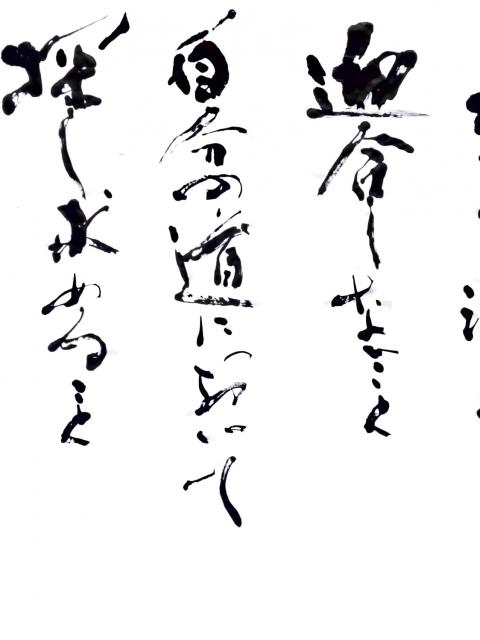 迎合しないこと
自分の道において
探し求めること